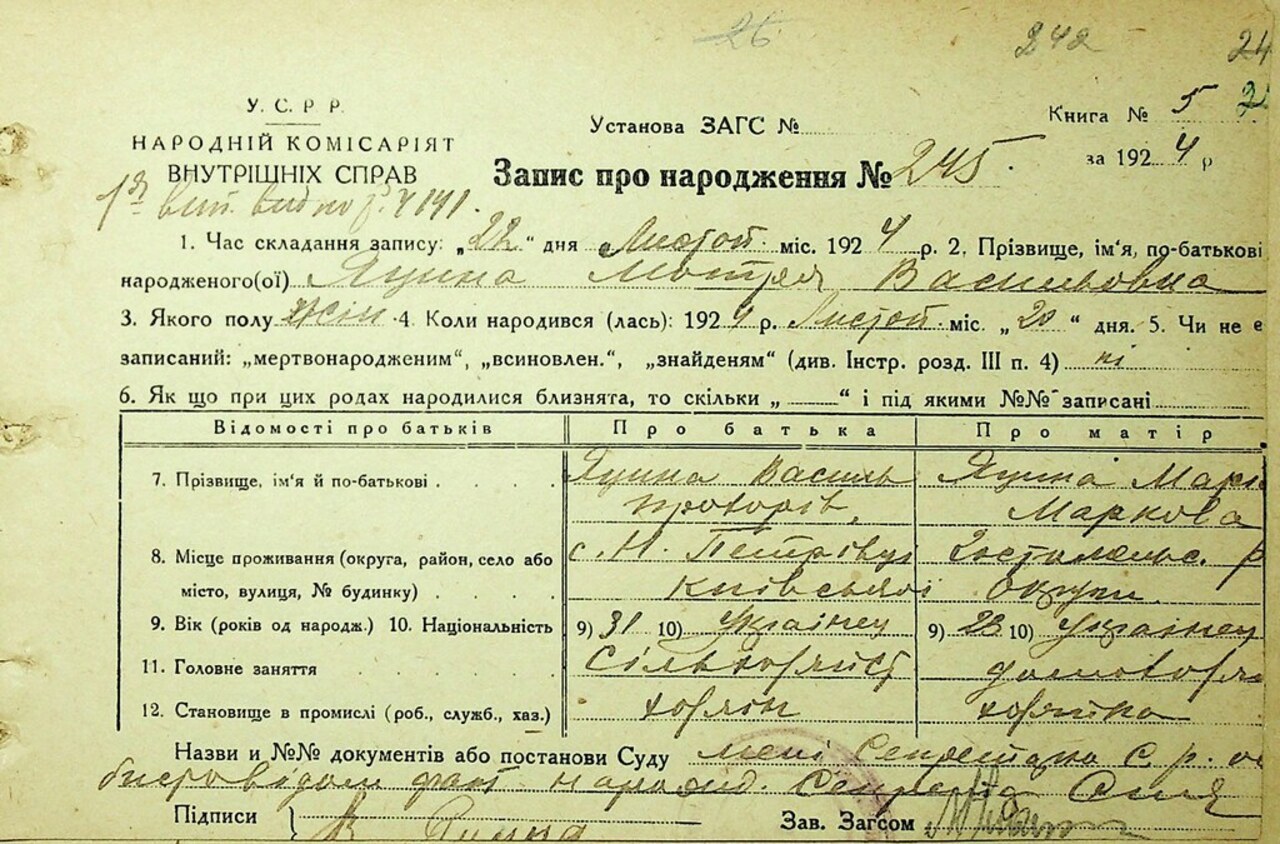 26 242 24
У. С. Р. Р.
НАРОДНІЙ КОМІСАРІЯТ
ВНУТРІШНІХ СПРАВ
Установа ЗАГС №
Книга № 5
за 1924 р
Запис про народження № 245.
1. Час складання запису: „22“ дня Листоп. міс. 1924 р. 2. Прізвище, ім'я, по-батькові
народженого(ої) Яцина Мотря Васильовна
3. Якого полу жін 4. Коли народився (лась): 1924 р. Листоп. міс. „20“ дня. 5. Чи не є
записаний: „мертвонародженим“, „всиновлен.“, „знайденям“ (див. Інстр. розд. III п. 4) ні
6. Як що при цих родах народилися близнята, то скільки „ “ і під якими №№ записані
Відомості про батьків Про батька Про матір
7. Прізвище, ім'я й по-батькові Яцина Василь Яцина Марі
Прохорів, Маркова
8. Місце проживання (округа, район, село або с. Н. Петрівці Гостомельс. р
місто, вулиця, № будинку) Київської округи
9. Вік (років од народж.) 10. Національність 9) 31 10) Українец 9) 28 10) Українец
11. Головне заняття
12. Становище в промислі (роб., служб., хаз.)
Назви и №№ документів або постанови Суду мені Секретарю с. р.
Підписи
Зав. Загсом